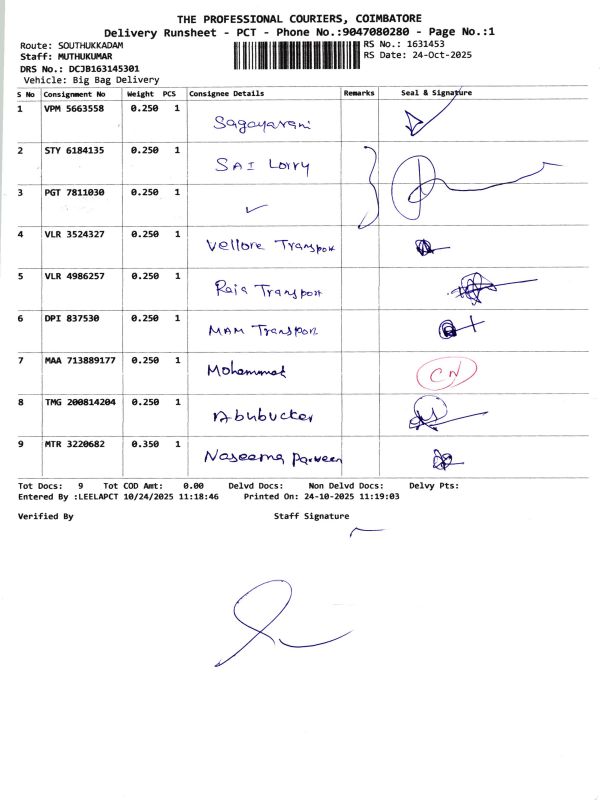 THE PROFESSIONAL COURIERS, COIMBATORE
Delivery Runsheet - PCT - Phone No.:9047080280 - Page No.:1
Route: SOUTHUKKADAM RS No.: 1631453
Staff: MUTHUKUMAR RS Date: 24-Oct-2025
DRS No.: DCJB163145301
Vehicle: Big Bag Delivery
S No Consignment No Weight PCS Consignee Details Remarks Seal & Signature
1 VPM 5663558 0.250 1 Sagayarani
2 STY 6184135 0.250 1 SAI Lorry
3 PGT 7811030 0.250 1
4 VLR 3524327 0.250 1 Vellore Transport
5 VLR 4986257 0.250 1 Raja Transport
6 DPI 837530 0.250 1 MAM Transport
7 MAA 713889177 0.250 1 Mohammed CN
8 TMG 200814204 0.250 1 Abubucker
9 MTR 3220682 0.350 1 Naseema Parveen
Tot Docs: 9 Tot COD Amt: 0.00 Delvd Docs: Non Delvd Docs: Delvy Pts:
Entered By :LEELAPCT 10/24/2025 11:18:46 Printed On: 24-10-2025 11:19:03
Verified By Staff Signature